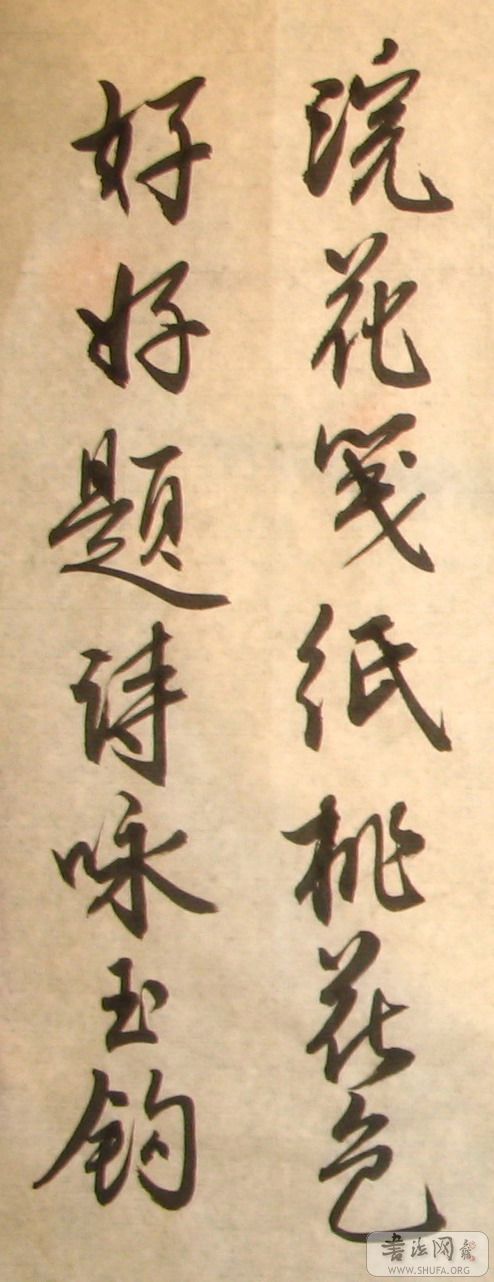 浣花笺纸桃花色
好好题诗咏玉钩
书法网
WWW.SHUFA.ORG